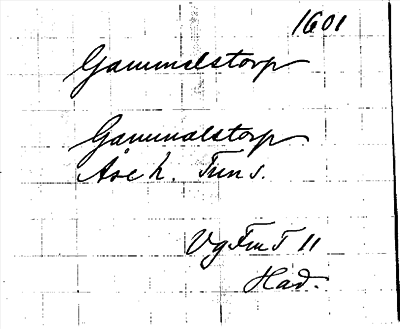 1601
Gammalstorp
Gammalstorp
Åse h. Tun s.
Vg Fm T 11
Had.